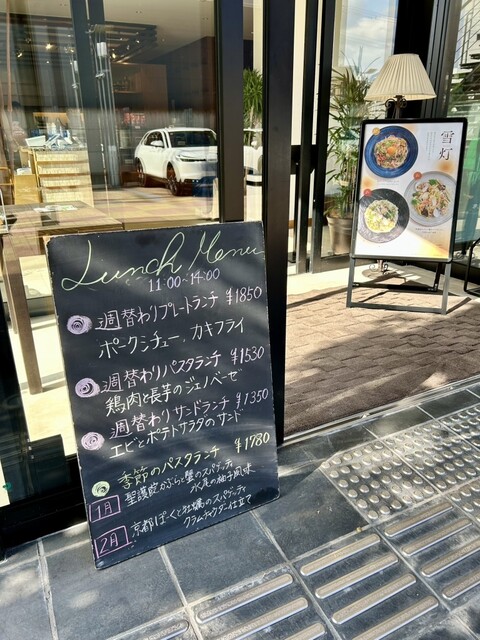 Lunch Menu
11:00~14:00
週替わりプレートランチ ¥1850
ポークシチュー, カキフライ
週替わりパスタランチ ¥1530
鶏肉と長芋のジェノベーゼ
週替わりサンドランチ ¥1350
エビとポテトサラダのサンド
季節のパスタランチ ¥1780
1月 聖護院かぶらと蟹のスパゲッティ
水尾の柚子風味
2月 京都ぽーくと牡蠣のスパゲッティ
クラムチャウダー仕立て
雪灯